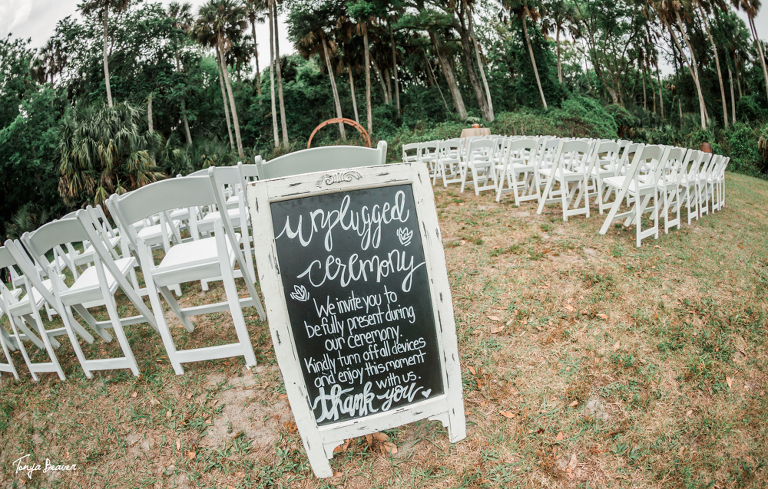 unplugged
ceremony
We invite you to
be fully present during
our ceremony.
Kindly turn off all devices
and enjoy this moment
with us.
thank you
Tonja Beaver